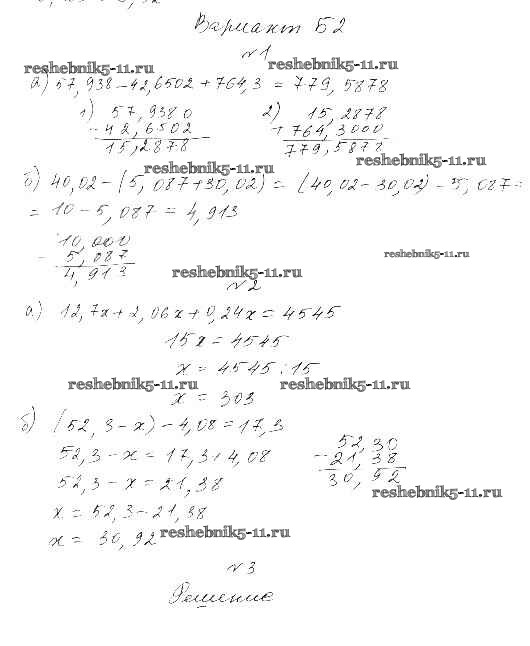 Вариант Б2
№1
reshebnik5-11.ru reshebnik5-11.ru
а) 57,938 - 42,6502 + 764,3 = 779,5878
1) 57,9380 2) 15,2878
- 42,6502 + 764,3000
15,2878 779,5878
reshebnik5-11.ru reshebnik5-11.ru
б) 40,02 - (5,087 + 30,02) = (40,02 - 30,02) - 5,087 =
= 10 - 5,087 = 4,913
10,000
- 5,087
4,913
reshebnik5-11.ru
reshebnik5-11.ru
№2
а) 12,7x + 2,06x + 0,24x = 4545
15x = 4545
x = 4545 : 15
reshebnik5-11.ru reshebnik5-11.ru
x = 303
б) (52,3 - x) - 4,08 = 17,3
52,3 - x = 17,3 + 4,08
52,3 - x = 21,38
x = 52,3 - 21,38
x = 30,92
52,30
- 21,38
30,92
reshebnik5-11.ru
reshebnik5-11.ru
№3
Решение